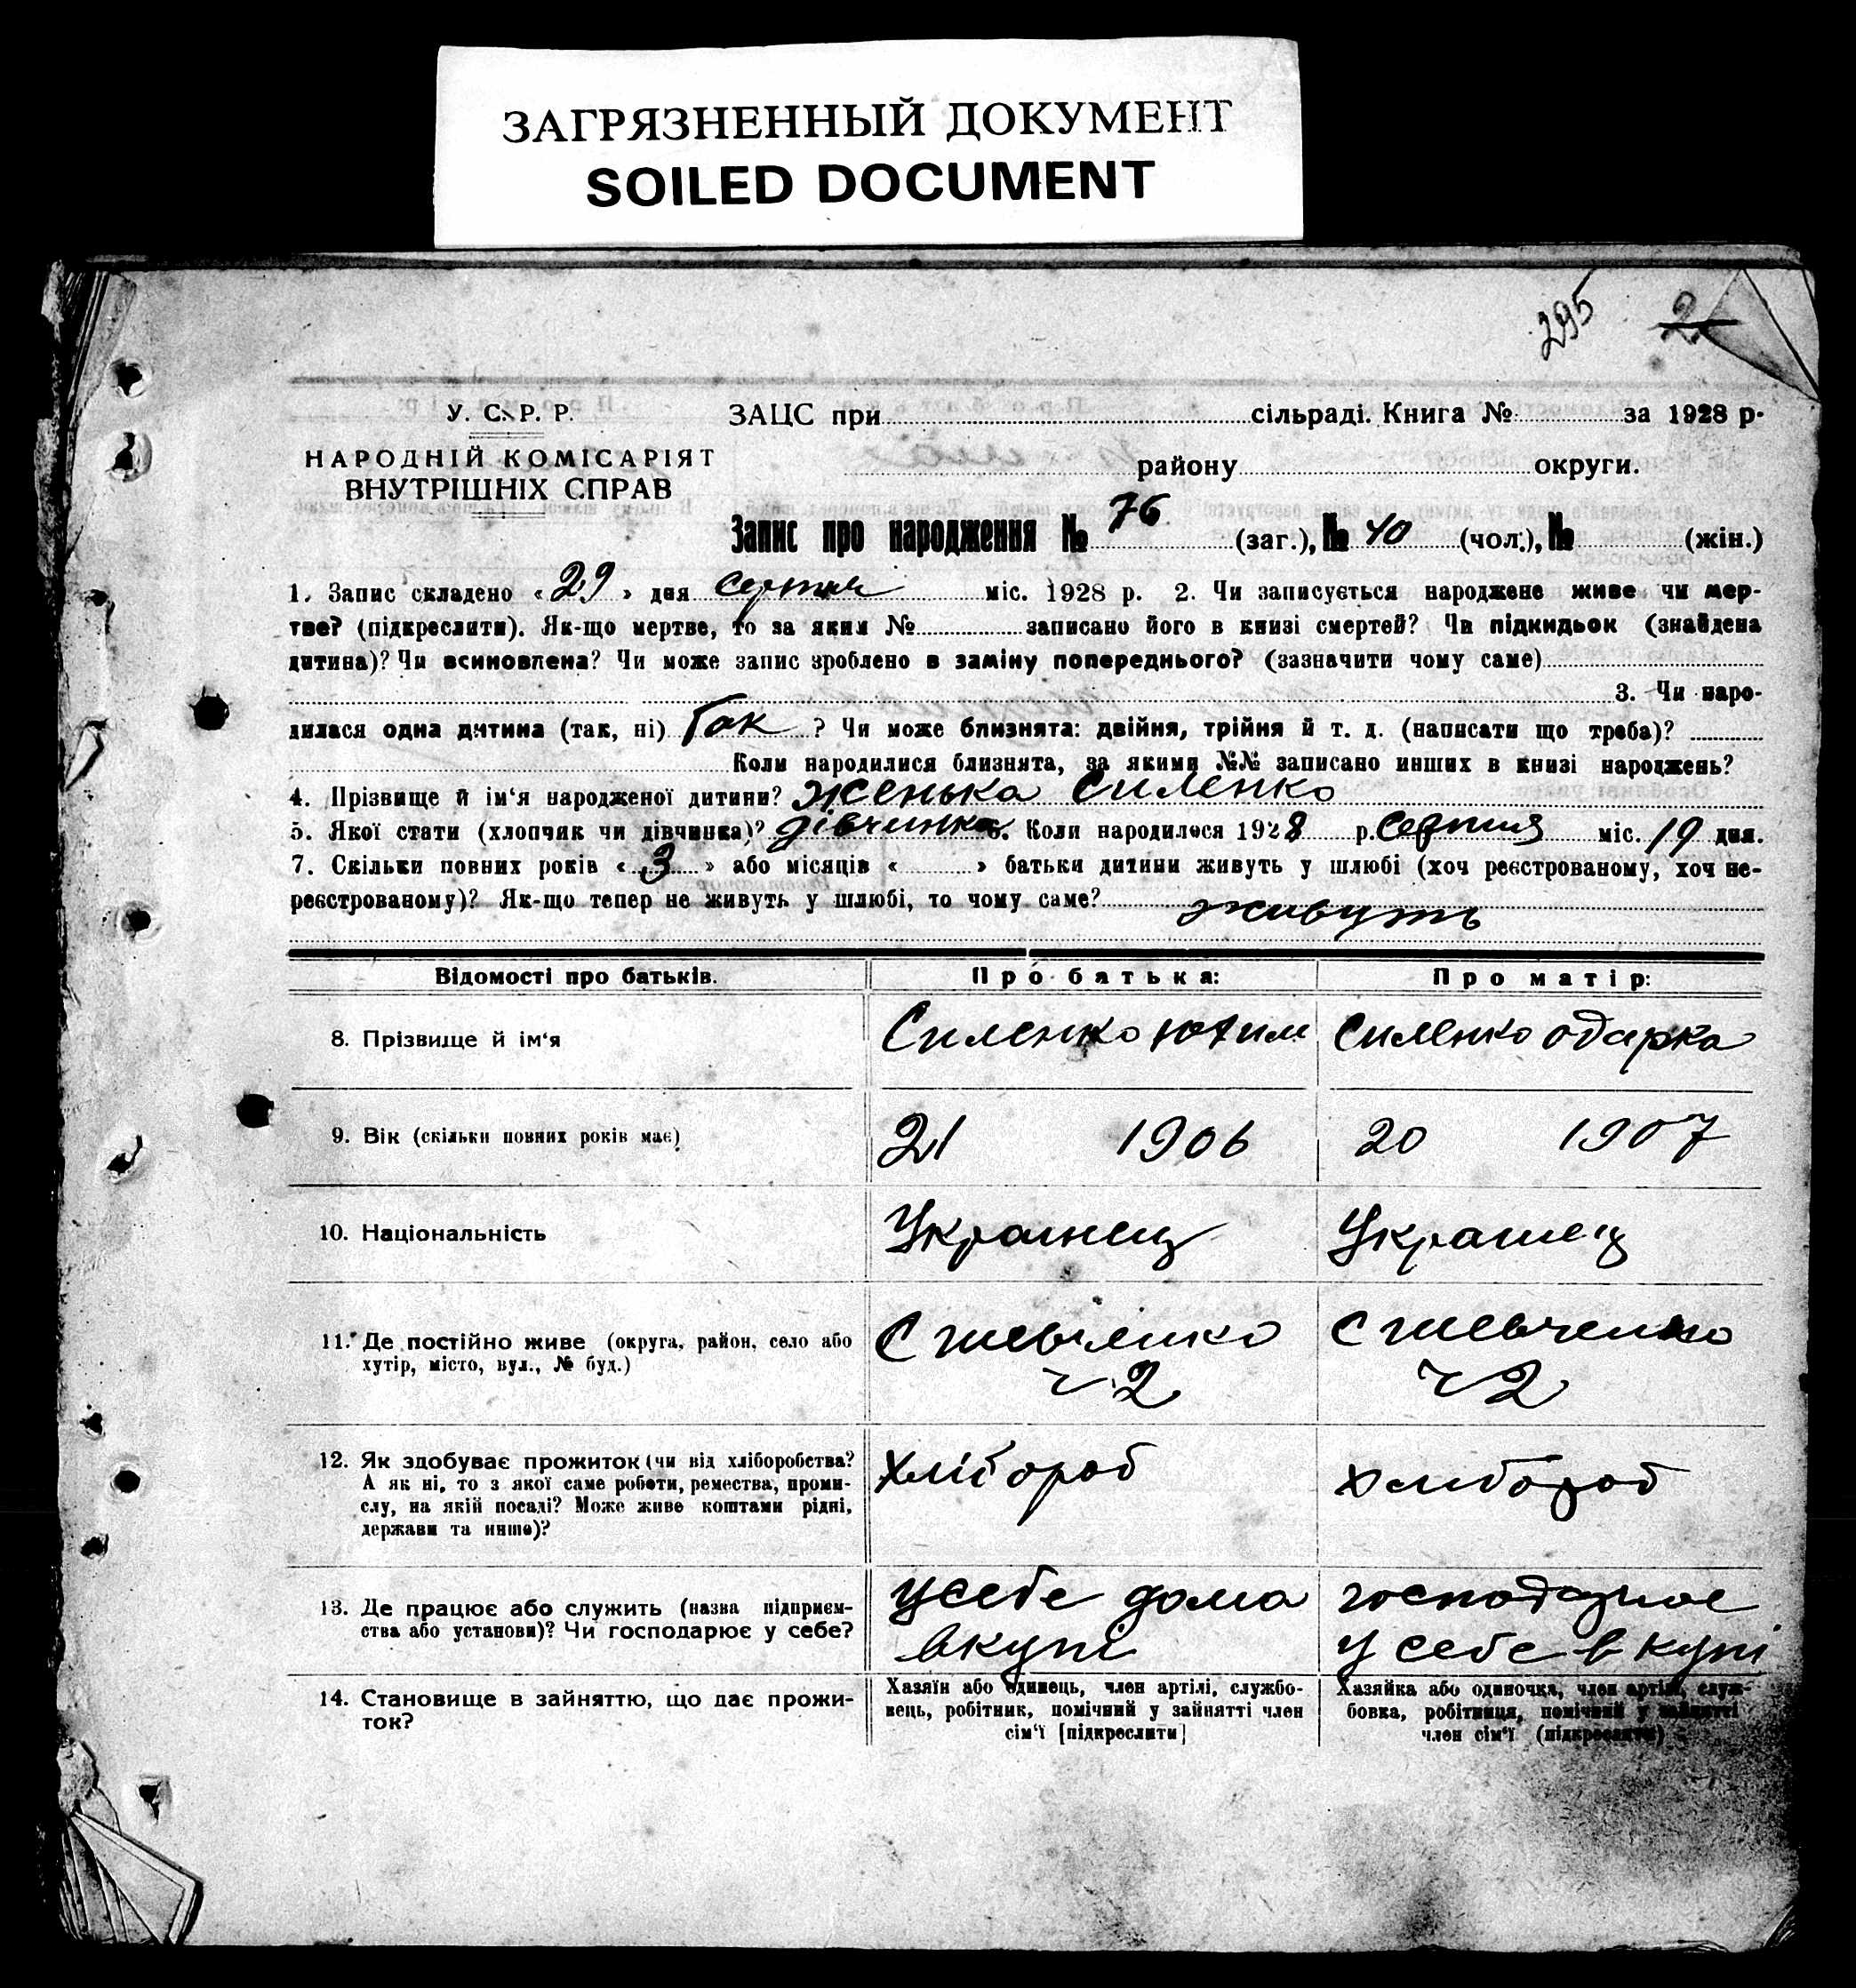 ЗАГРЯЗНЕННЫЙ ДОКУМЕНТ
SOILED DOCUMENT
295 2
У. С. Р. Р.
НАРОДНІЙ КОМІСАРІЯТ
ВНУТРІШНІХ СПРАВ
ЗАЦС при сільраді. Книга № за 1928 р.
району округи.
Запис про народження № 76 (заг.), № 40 (чол.), № (жін.)
1. Запис складено «29» дня серпня міс. 1928 р. 2. Чи записується народжене живе чи мер-
тве? (підкреслити). Як-що мертве, то за яким № записано його в книзі смертей? Чи підкидьок (знайдена
дитина)? Чи всиновлена? Чи може запис зроблено в заміну попереднього? (зазначити чому саме)
3. Чи наро-
дилася одна дитина (так, ні) Так ? Чи може близнята: двійня, трійня й т. д. (написати що треба)?
Коли народилися близнята, за якими №№ записано инших в книзі народжень?
4. Прізвище й ім‘я народженої дитини? Женька Силенко
5. Якої стати (хлопчяк чи дівчинка)? дівчинка 6. Коли народилося 1928 р. Серпня міс. 19 дня.
7. Скільки повних років «3» або місяців « » батьки дитини живуть у шлюбі (хоч реєстрованому, хоч не-
реєстрованому)? Як-що тепер не живуть у шлюбі, то чому саме? живуть
Відомості про батьків. Про батька: Про матір:
8. Прізвище й ім‘я Силенко Юхим Силенко Одарка
9. Вік (скільки повних років має) 21 1906 20 1907
10. Національність Украинец Украинец
11. Де постійно живе (округа, район, село або
хутір, місто, вул., № буд.)
С Шевченко С Шевченко
ч 2 ч 2
12. Як здобуває прожиток (чи від хліборобства?
А як ні, то з якої саме роботи, ремества, проми-
слу, на якій посаді? Може живе коштами рідні,
держави та инше)?
Хлібороб Хлибороб
13. Де працює або служить (назва підприєм-
ства або установи)? Чи господарює у себе?
у себе дома
вкупі
господарює
у себе вкупі
14. Становище в зайняттю, що дає прожи-
ток?
Хазяїн або одинець, член артілі, службо-
вець, робітник, помічний у зайнятті член
сім‘ї [підкреслити]
Хазяйка або одиночка, член артілі, служ-
бовка, робітниця, помічний у зайнятті
член сім‘ї (підкреслити)